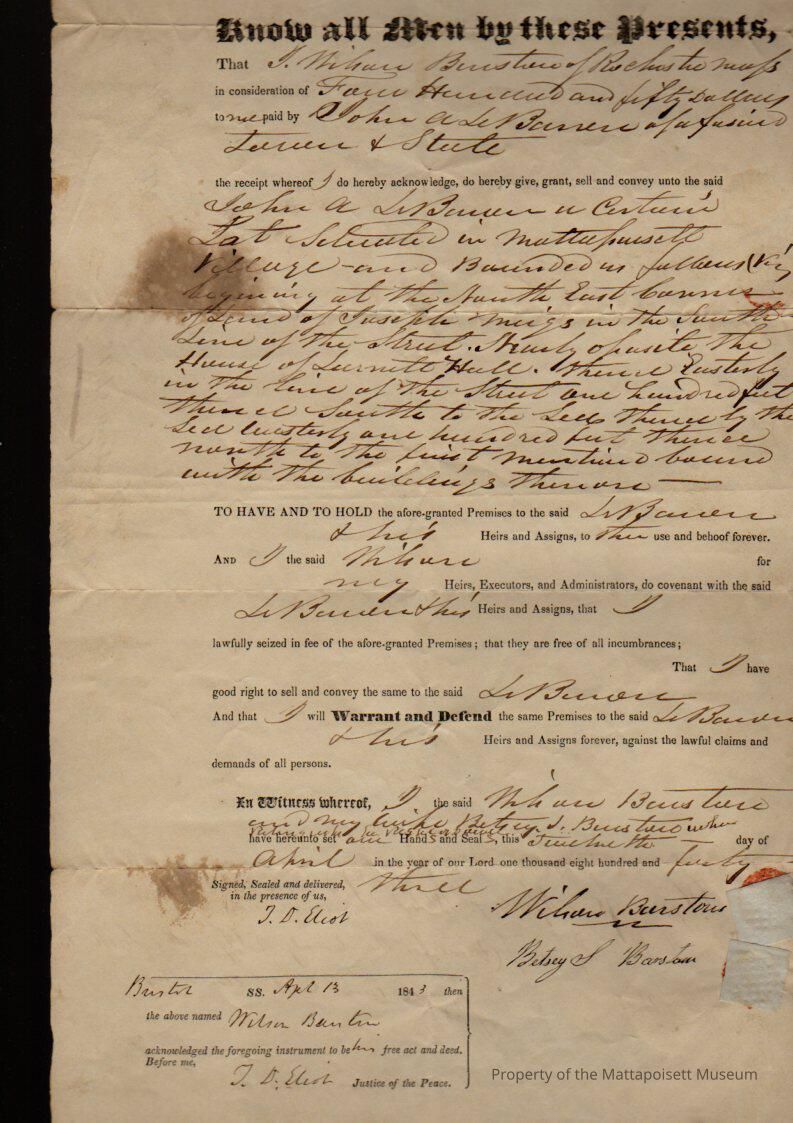 Know all Men by these Presents,
That I, Wilson Barstow of Rochester Mass
in consideration of Four Hundred and fifty Dollars
to me paid by John A LeBaron of aforesaid
Town & State
the receipt whereof I do hereby acknowledge, do hereby give, grant, sell and convey unto the said
John A LeBaron a Certain
Lot Situated in Mattapoisett
Village and Bounded as follows (Viz
begining at the North East Corner
of Land of Joseph Meigs in the South
Line of the Street. Nearly oposite the
House of Hall. thence Easterly
in the line of the Street one hundred feet
thence South to the Sea thence by the
Sea westerly one hundred feet thence
north to the first mentiond bound
with the buildings thereon
TO HAVE AND TO HOLD the afore-granted Premises to the said LeBaron
& his Heirs and Assigns, to their use and behoof forever.
AND I the said Wilson for
my Heirs, Executors, and Administrators, do covenant with the said
LeBaron & his Heirs and Assigns, that I
lawfully seized in fee of the afore-granted Premises; that they are free of all incumbrances;
That I have
good right to sell and convey the same to the said LeBaron
And that I will Warrant and Defend the same Premises to the said LeBaron
& his Heirs and Assigns forever, against the lawful claims and
demands of all persons.
In Witness whereof, I the said Wilson Barstow
and my wife Betsey S. Barstow who
have hereunto set our Hands and Seals, this Twelfth day of
April in the year of our Lord one thousand eight hundred and forty
three
Signed, Sealed and delivered,
in the presence of us,
T. D. Eliot
Wilson Barstow
Betsey S Barstow
Bristol SS. Apl 13 1843 then
the above named Wilson Barstow
acknowledged the foregoing instrument to be his free act and deed.
Before me,
T. D. Eliot Justice of the Peace.
Property of the Mattapoisett Museum